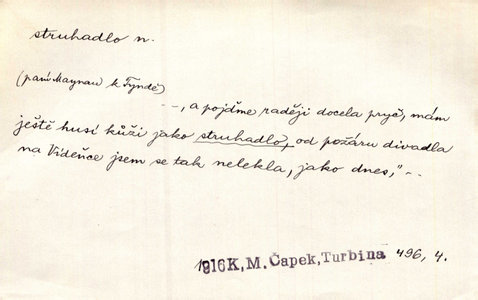 struhadlo n.
(paní Maynau k Tyndě)
--, a pojďme raději docela pryč, mám
ještě husí kůži jako struhadlo, od požáru divadla
na Vídeňce jsem se tak nelekla, jako dnes," --
1916 K, M. Čapek, Turbina 496, 4.